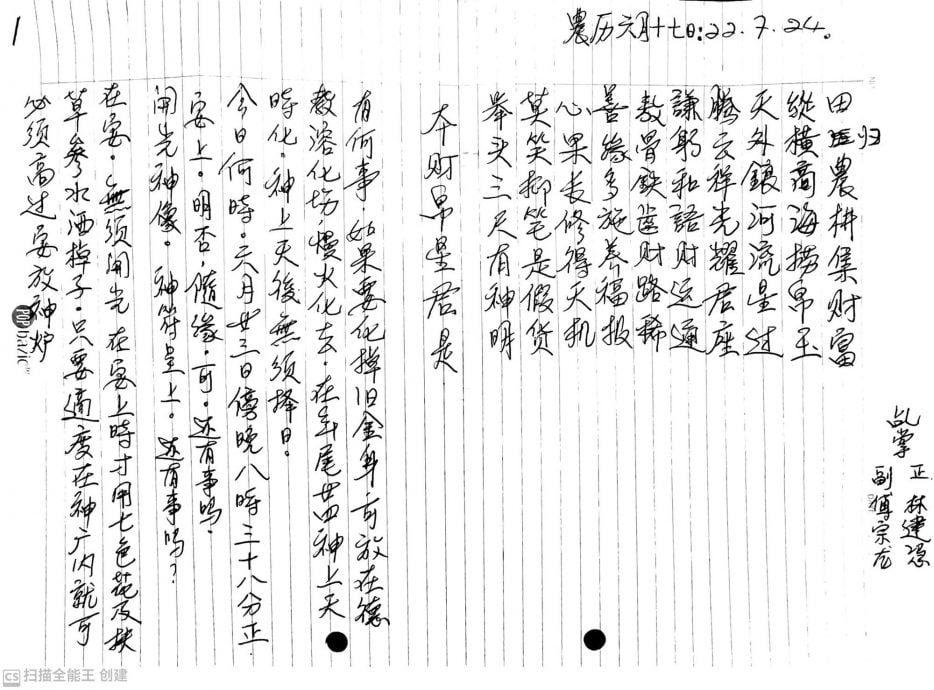 1
農历六月十七日:22.7.24。
乩掌 正 林建
副 傅宗龙
田归農耕集财富
縱橫商海捞帛玉
天外銀河流星过
腾云祥光耀君座
謙躬和語财运通
敖骨鉄齿财路稀
善缘多施養福报
心果长修得天机
莫笑抑笔是假货
举头三尺有神明
本财帛星君是
有何事.如果要化掉旧金身可放在德
教溶化场慢火化去.在年尾廿四神上天
時化.神上天後無须择日。
今日何時.六月廿三日傍晚八時三十八分正
安上。明否.隨缘.可。还有事吗.
開光神像。神符呈上。还有事吗?
在安.無须開光在安上時才用七色花及抹
草参水洒掉子.只要適度在神广内就可
必须高过安放神炉
CS 扫描全能王 创建